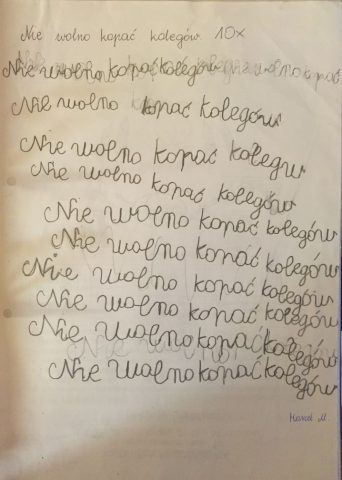 Nie wolno kopać kolegów 10x
Nie wolno kopać kolegów
Nie wolno kopać kolegów
Nie wolno kopać kolegw
Nie wolno kopać kolegów
Nie wolno kopać kolegów
Nie wolno kopać kolegów
Nie wolno kopać kolegów
Nie wolno kopać kolegów
Nie wolno kopać kolegów
Nie wolno kopać kolegów
Marcel M.